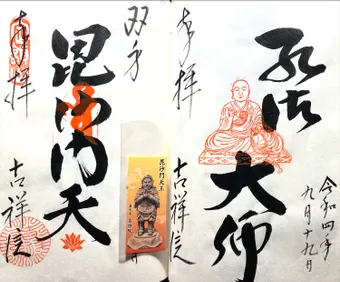 奉拝
弘法
大師
吉祥院
令和四年
九月十九日
奉拝
毘沙門天
吉祥院
毘沙門天王